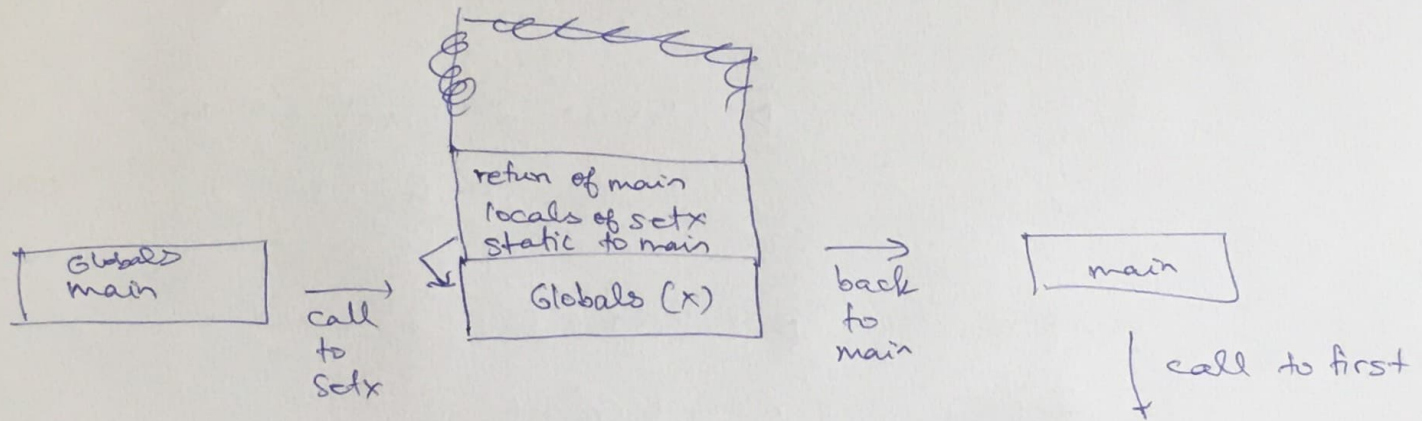 Globals
main
call
to
setx
return of main
locals of setx
static to main
Globals (x)
back
to
main
main
call to first